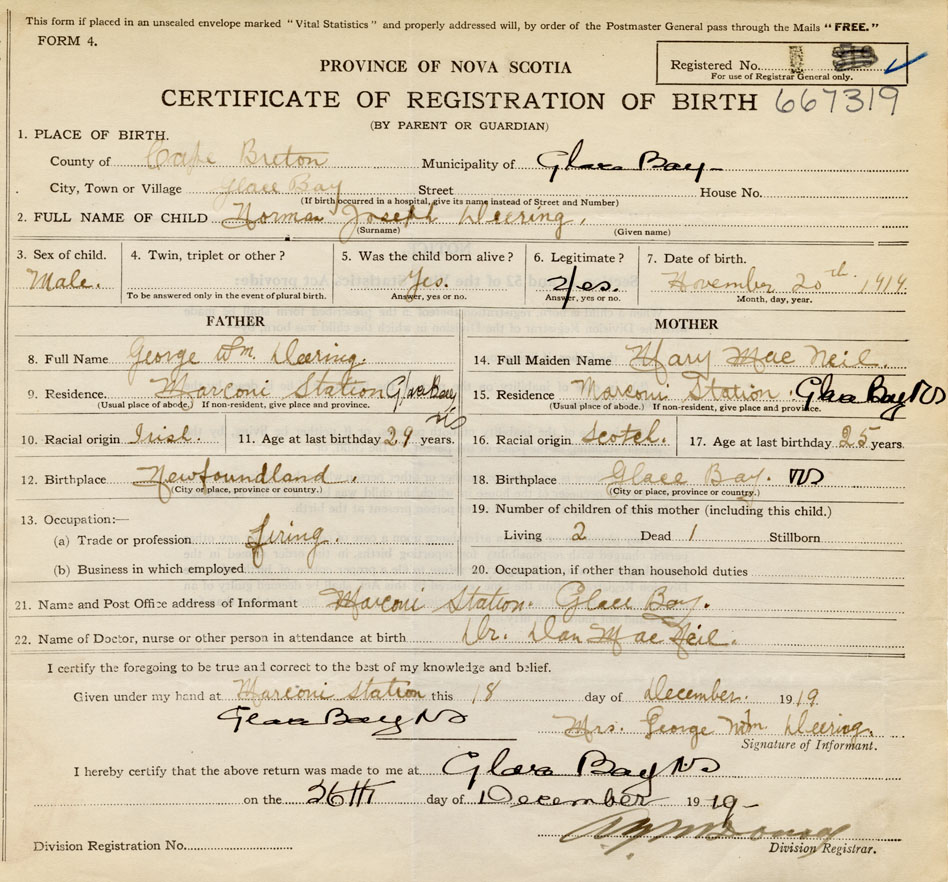 This form if placed in an unsealed envelope marked "Vital Statistics" and properly addressed will, by order of the Postmaster General pass through the Mails "FREE."
FORM 4.
Registered No.
For use of Registrar General only.
PROVINCE OF NOVA SCOTIA
CERTIFICATE OF REGISTRATION OF BIRTH 667319
(BY PARENT OR GUARDIAN)
1. PLACE OF BIRTH.
County of Cape Breton Municipality of Glace Bay
City, Town or Village Glace Bay Street House No.
(If birth occurred in a hospital, give its name instead of Street and Number)
2. FULL NAME OF CHILD Norman Joseph Deering.
(Surname) (Given name)
3. Sex of child. 4. Twin, triplet or other? 5. Was the child born alive? 6. Legitimate? 7. Date of birth.
Male. Yes. Yes. November 20th. 1919.
To be answered only in the event of plural birth. Answer, yes or no. Answer, yes or no. Month, day, year.
FATHER MOTHER
8. Full Name George Wm. Deering. 14. Full Maiden Name Mary Mac Neil.
9. Residence. Marconi Station Glace Bay NS 15. Residence Marconi Station. Glace Bay NS
(Usual place of abode.) If non-resident, give place and province. (Usual place of abode.) If non-resident, give place and province.
10. Racial origin Irish. 11. Age at last birthday 29 years. 16. Racial origin Scotch. 17. Age at last birthday 25 years.
12. Birthplace Newfoundland. 18. Birthplace Glace Bay. NS
(City or place, province or country.) (City or place, province or country.)
13. Occupation:— 19. Number of children of this mother (including this child.)
(a) Trade or profession firing. Living 2 Dead 1 Stillborn
(b) Business in which employed 20. Occupation, if other than household duties
21. Name and Post Office address of Informant Marconi Station. Glace Bay.
22. Name of Doctor, nurse or other person in attendance at birth Dr. Dan Mac Neil.
I certify the foregoing to be true and correct to the best of my knowledge and belief.
Given under my hand at Marconi Station this 18 day of December. 1919
Glace Bay NS Mrs. George Wm Deering.
Signature of Informant.
I hereby certify that the above return was made to me at Glace Bay NS
on the 26th day of December 1919-
Division Registration No. Division Registrar.